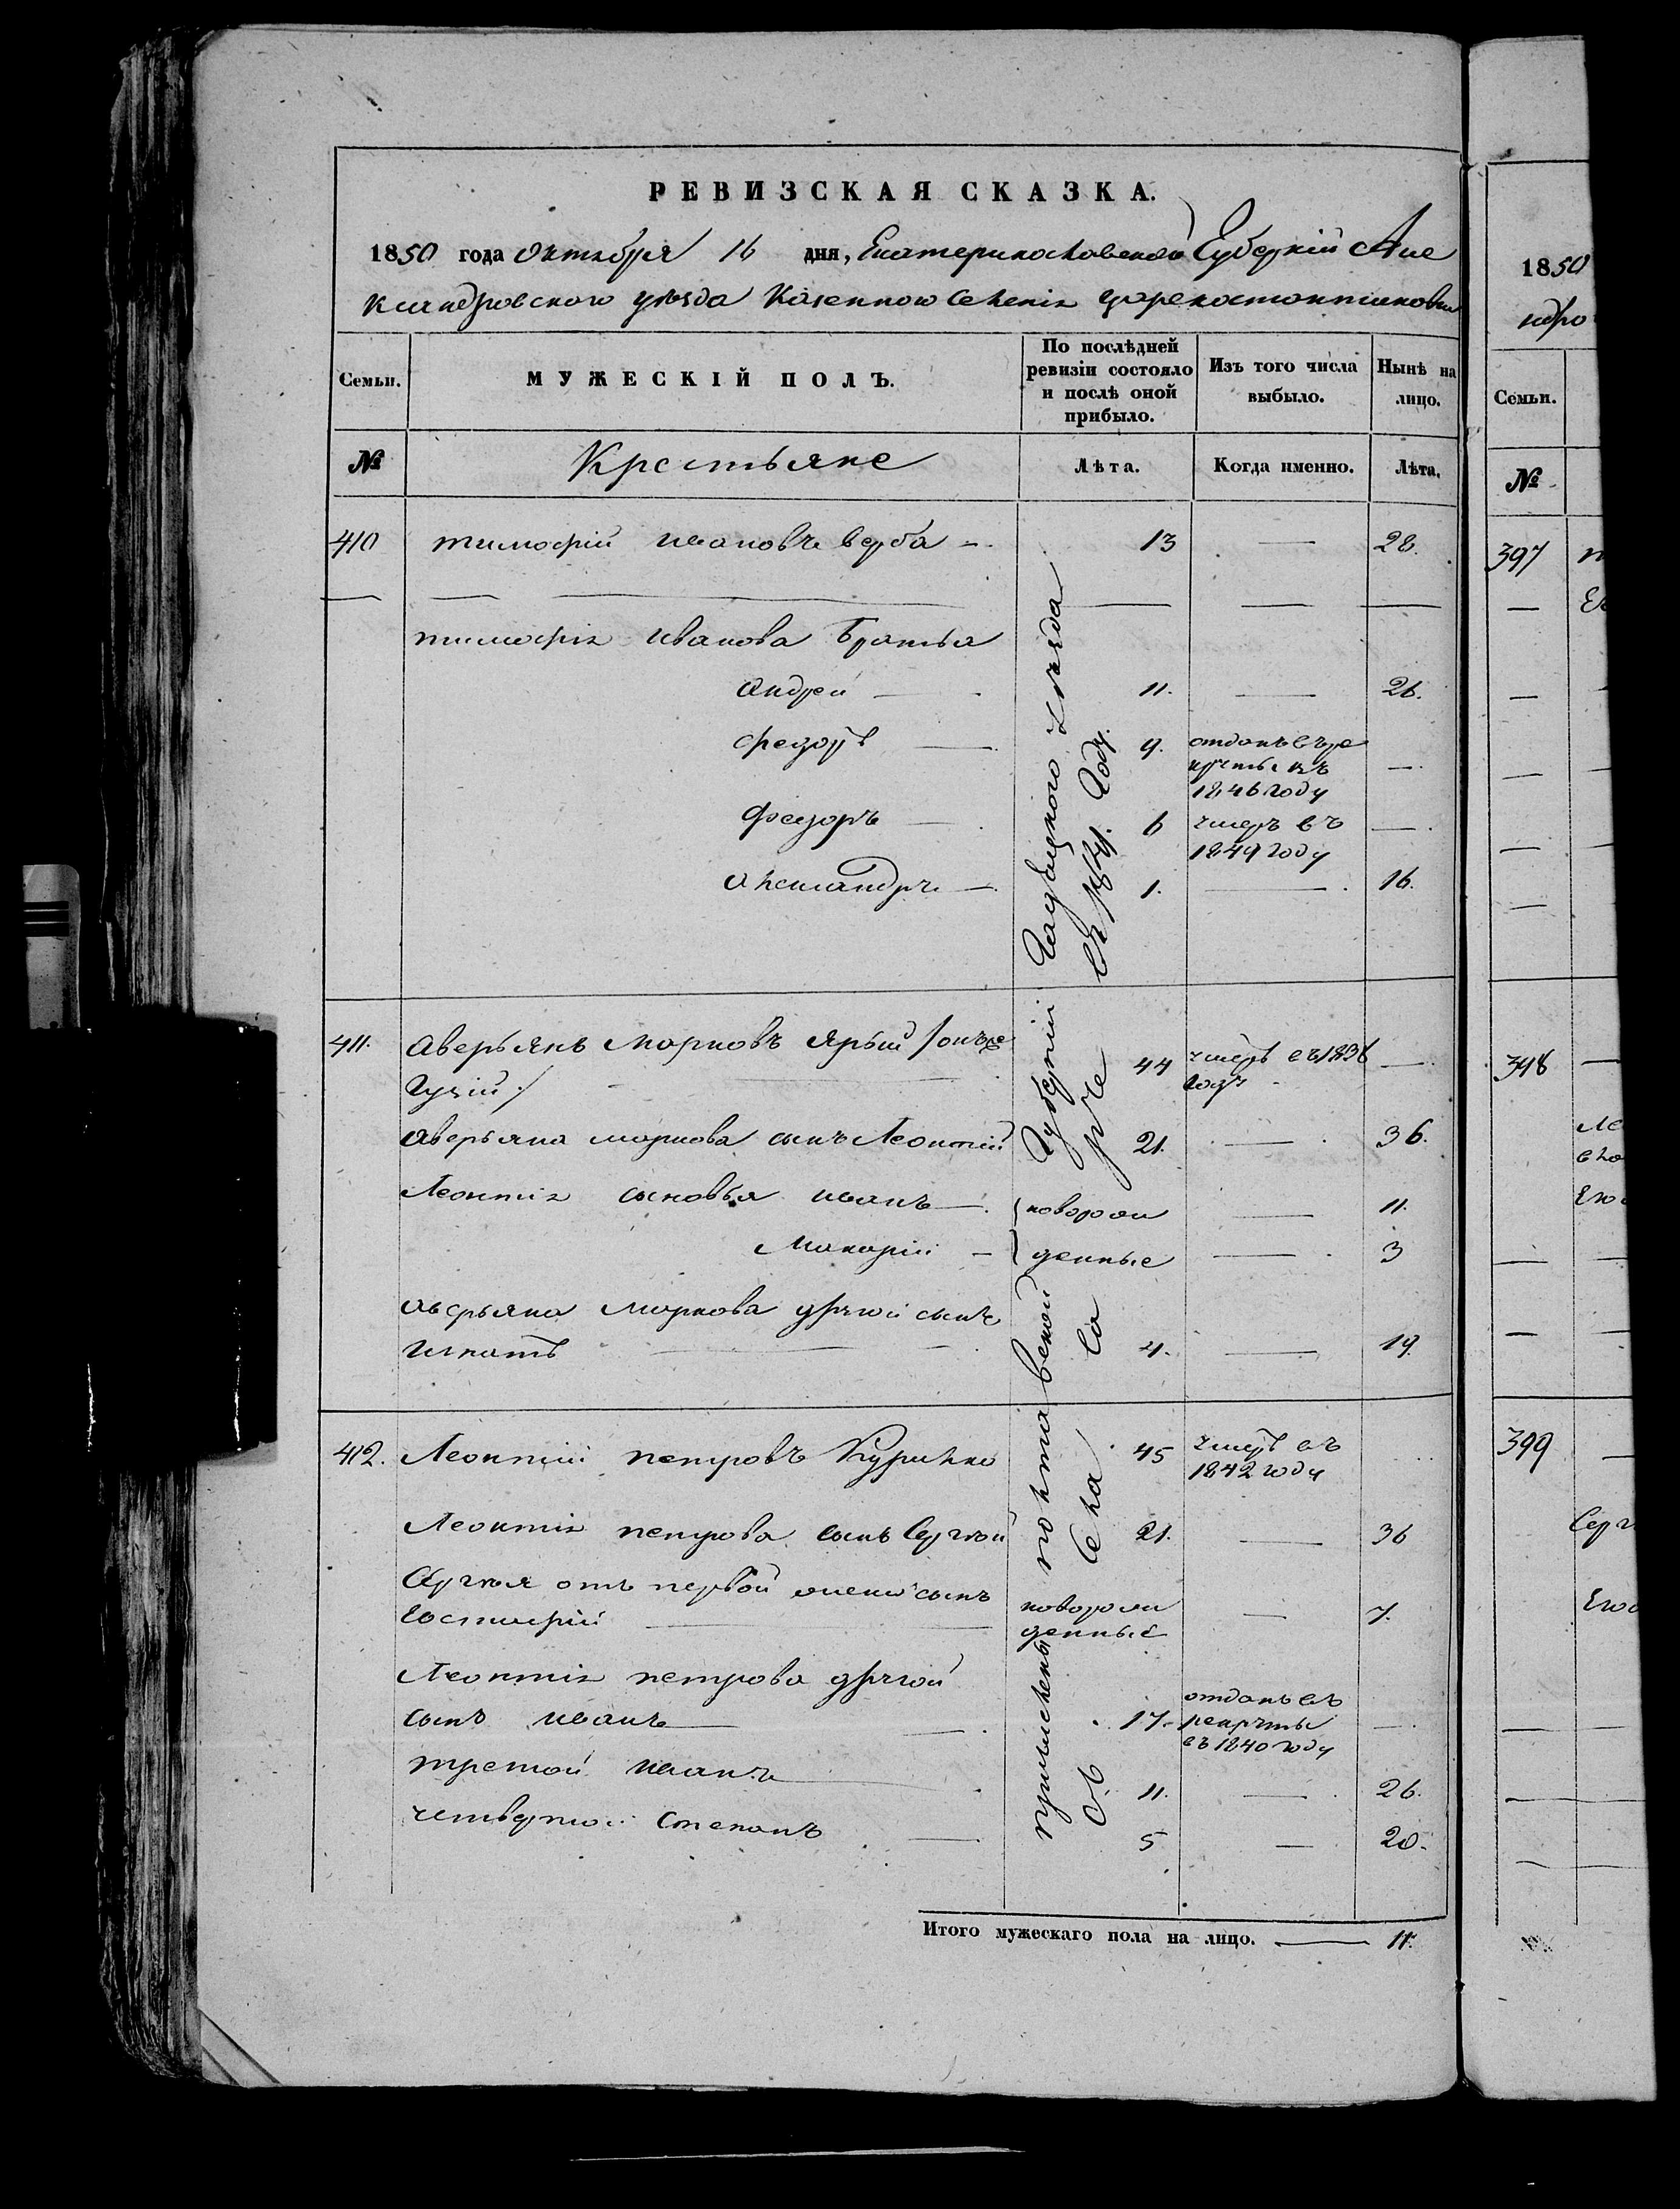 РЕВИЗСКАЯ СКАЗКА.
1850 года октября 16 дня, Екатеринославской Губерніи Але
ксандровского уѣзда Казенного Селенія Цареконстантиновки
Семьи. МУЖЕСКІЙ ПОЛЪ. По послѣдней ревизіи состояло и послѣ оной прибыло. Изъ того числа выбыло. Нынѣ на лицо.
№ Крестьяне Лѣта. Когда именно. Лѣта.
410 тимофій ивановъ верба 13 — 28.
тимофія иванова братья
андрей — 11. — 26.
федоръ — 9. отданъ въ ре
круты въ —
1846 году
федоръ — 6 умеръ въ —
1849 году
александръ — 1. — 16.
411. аверьянъ марковъ ярый /онъ же 44 умеръ въ 1836 —
году
аверьяна маркова сынъ Леонтій 21. — 36.
Леонтія сыновья иванъ — новорож — 11.
Макарій — денные — 3
аверьяна маркова другой сынъ
игнатъ — 4. — 19.
412. Леонтій петровъ 45 умеръ въ
1842 году
Леонтія петрова сынъ Сергѣй 21. — 36
Сергѣя отъ первой жены сынъ новорож — 7.
денные
Леонтія петрова другой
сынъ иванъ — 17. отданъ въ
рекруты —
въ 1840 году
третой иванъ — 11. — 26.
четвертой степанъ — 5 — 20.
причислены полтавской Губерніи уѣзда
села въ году
Итого мужескаго пола на лицо. — 11.
1850
ндро
Семьи.
№
397
398
399
Серг